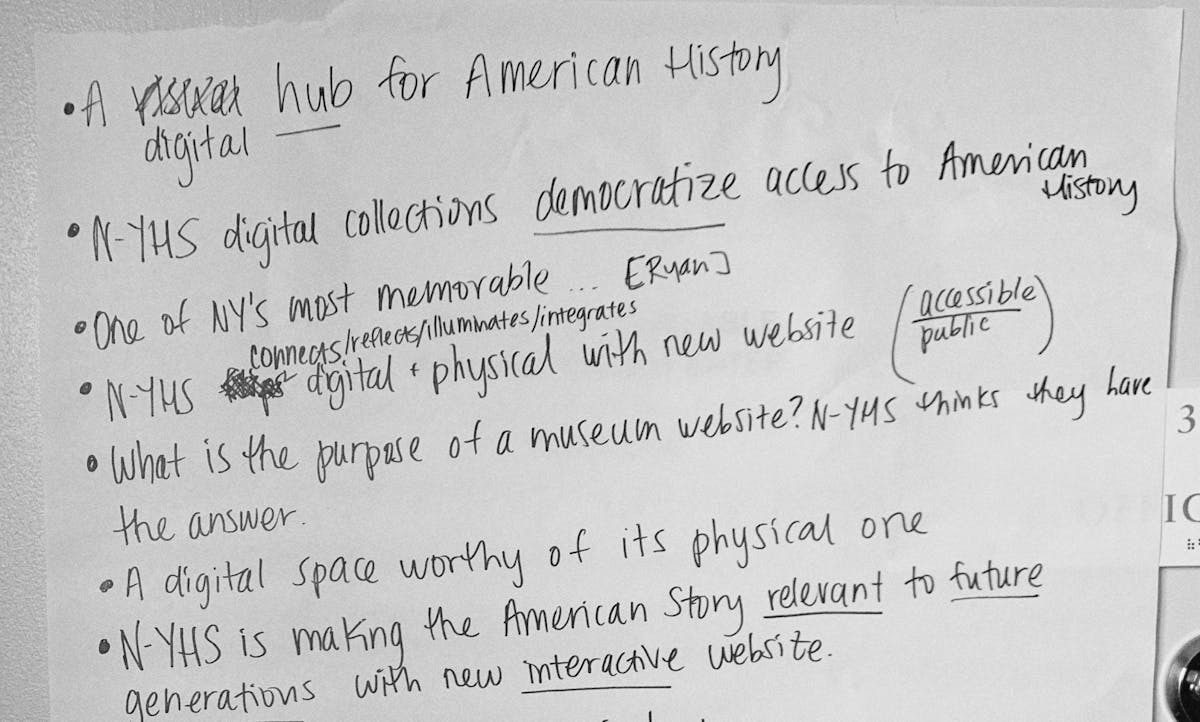 • A visual hub for American History
digital
• N-YHS digital collections democratize access to American
History
• One of NY's most memorable ... [Ryan]
connects/reflects/illuminates/integrates
• N-YHS digital + physical with new website (accessible
public)
• What is the purpose of a museum website? N-YHS thinks they have
the answer.
• A digital space worthy of its physical one
• N-YHS is making the American Story relevant to future
generations with new interactive website.
3